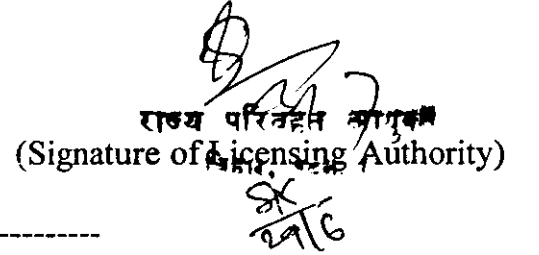 राज्य परिवहन आयुक्त
(Signature of Licensing Authority)
बिहार, पटना
29/6